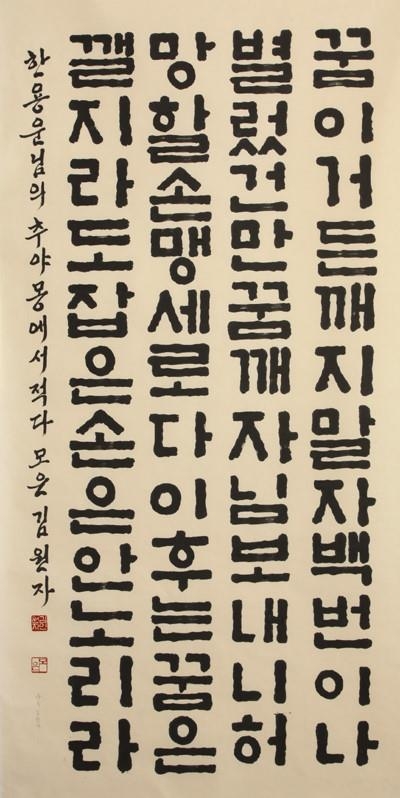 꿈이거든깨지말자백번이나
별렀건만꿈깨자님보내니허
망할손맹세로다이후는꿈은
깰지라도잡은손은안노리라
한용운님의 추야몽에서 적다 모은 김원자